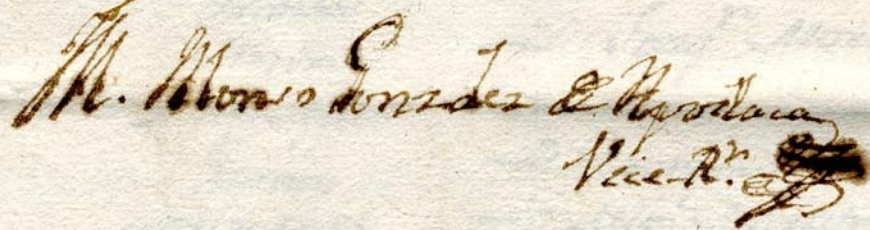 M. Alonso Gonzalez de Apodaca
Vice Rr.